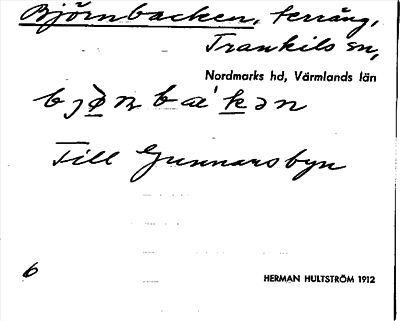 Björnbacken, terräng,
Trankils sn,
Nordmarks hd, Värmlands län
Till Gunnarsbyn
6
HERMAN HULTSTRÖM 1912